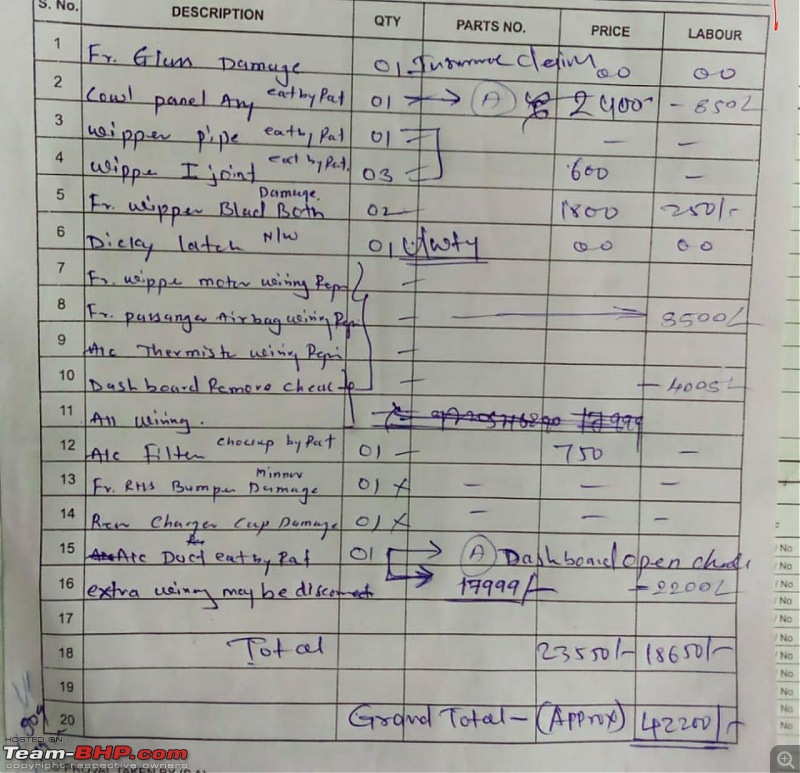 S. No. DESCRIPTION QTY PARTS NO. PRICE LABOUR
1 Fr. Glass Damage 01 Insurance Claim 00 00
2 Cowl panel Assy eat by Rat 01 A 2400 - 850/-
3 wipper pipe eat by Rat 01 — —
4 wippe I joint eat by Rat. 03 600 —
5 Fr. wipper Blad Both Damage. 02 — 1800 250/-
6 Dicky latch N/W 01 00 00
7 Fr. wippe motor wiring Repa —
8 Fr. passanger Airbag wiring Rep — 8500/-
9 A/c Thermistr wiring Repai —
10 Dash board Remove cheac —
11 All wiring.
12 A/c Filter by Rat 01 — 750 —
13 Fr. RHS Bumper Minner Damage 01 x — — —
14 Charger Cap Damage 01 x — — —
15 A/c Duct eat by Rat 01 A Dashboard open
16 extra wiring may be 17999/- - 2200/-
17
18 Total 23550/- 18650/-
19
20 Grand Total - (Approx) 42200/-
HOSTED ON :
Team-BHP.com
copyright respective owners
/ No
/ No
/ No
/ No
/ No
/ No
/ No
No
No
No
No